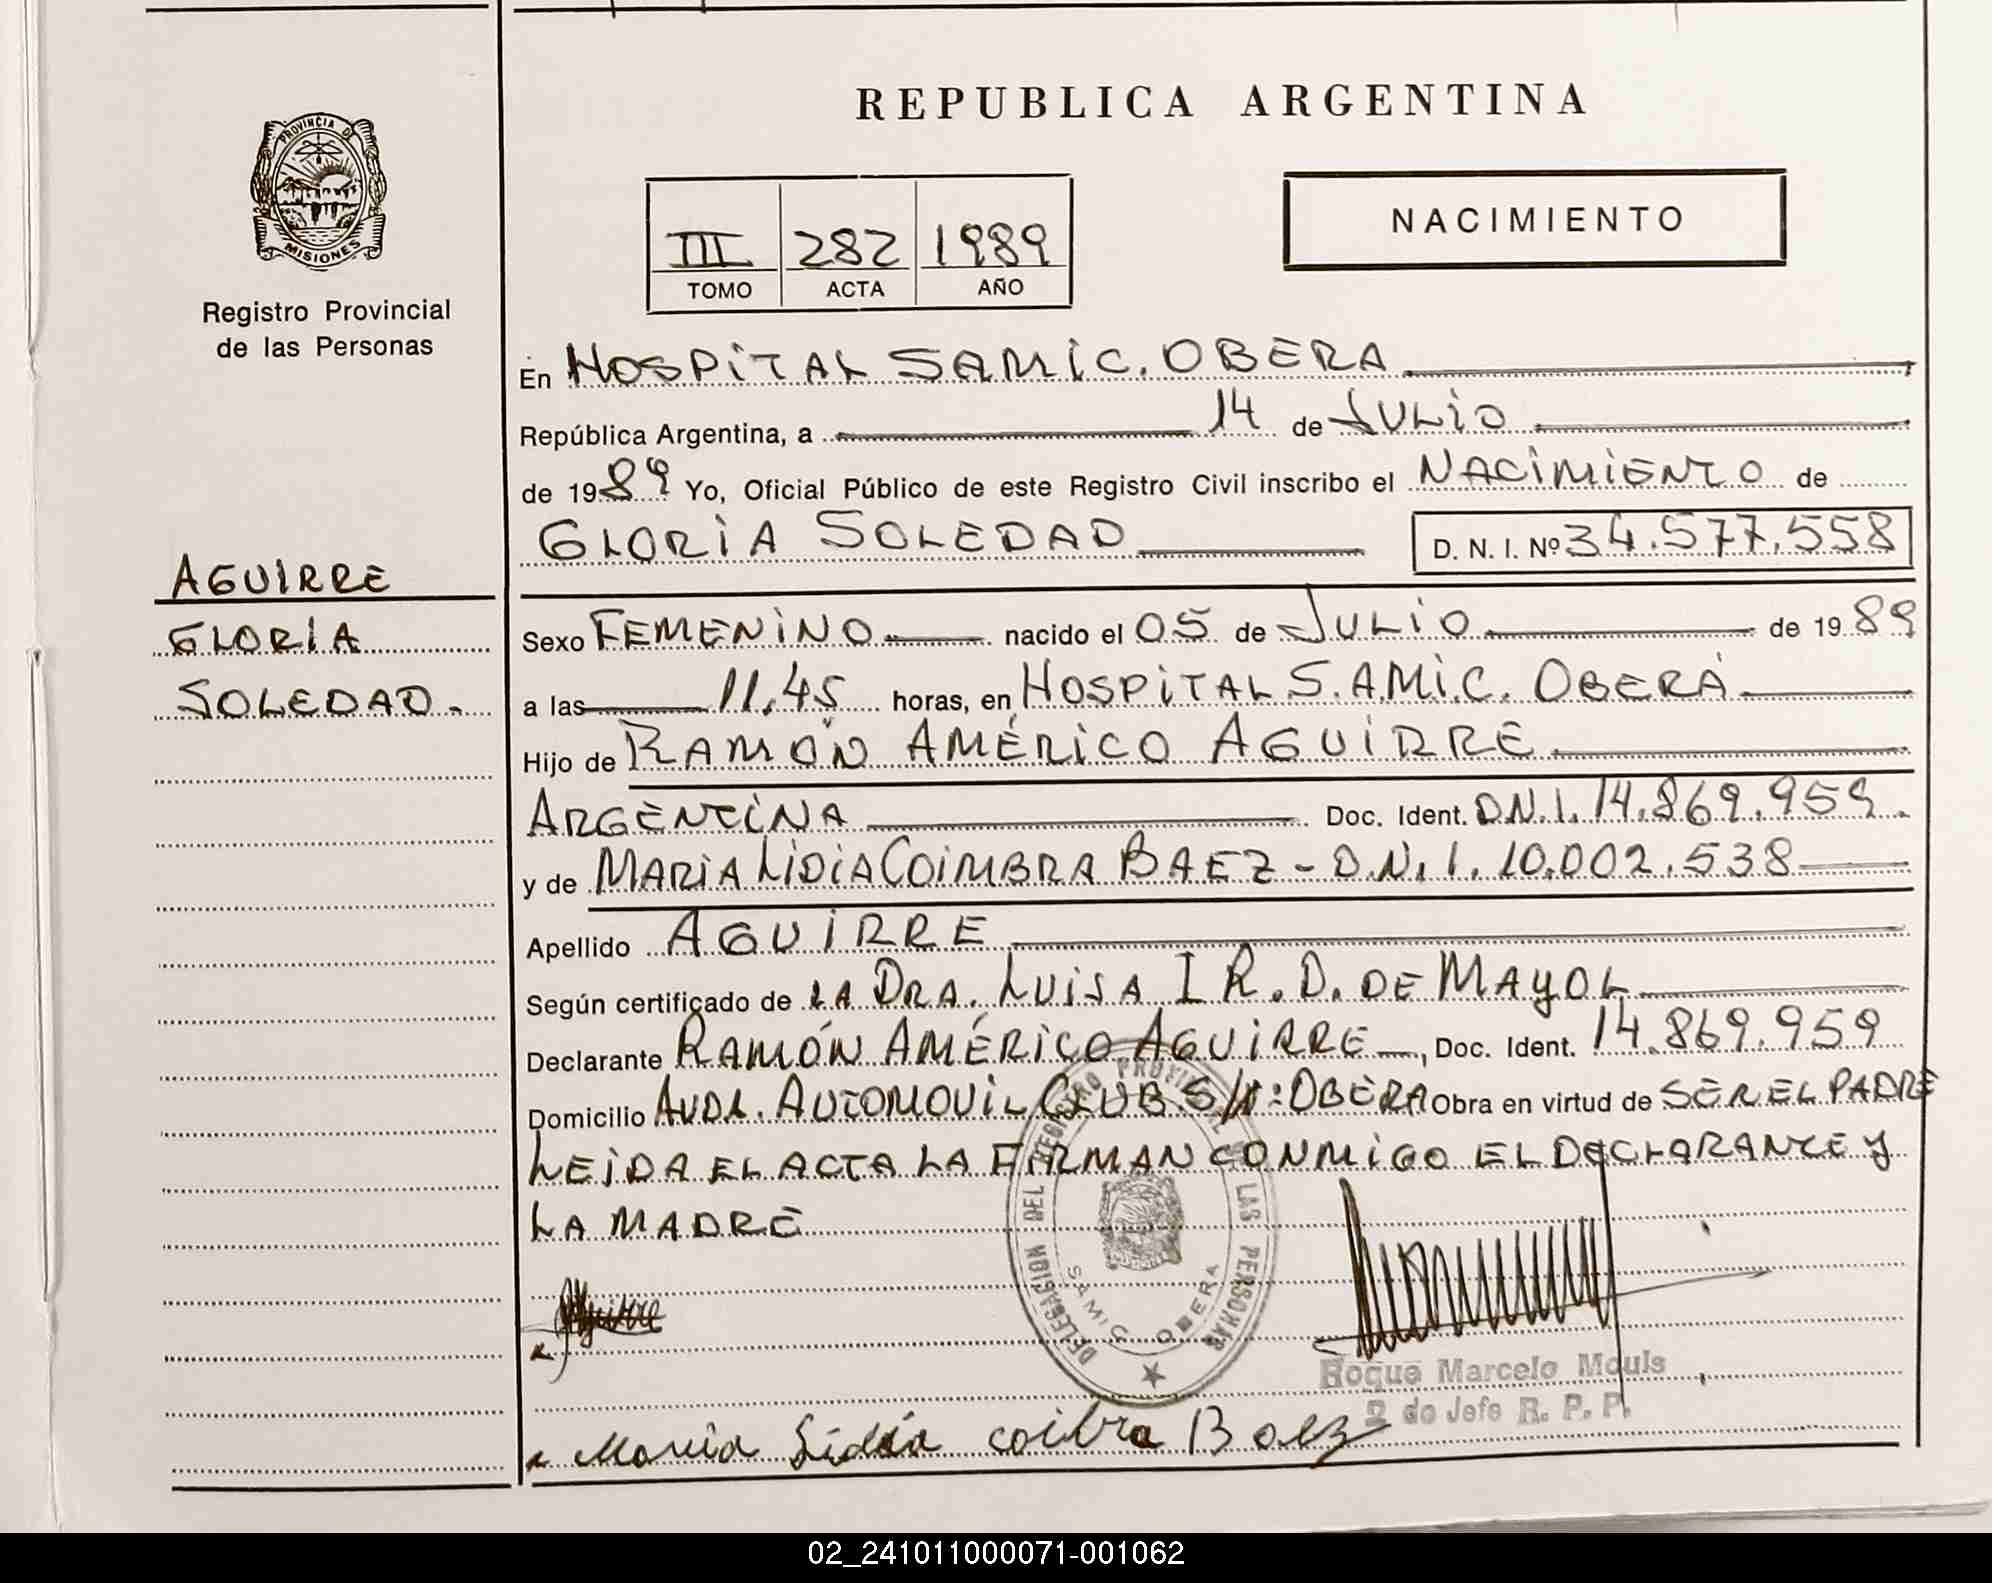 REPUBLICA ARGENTINA
PROVINCIA DE
MISIONES
Registro Provincial
de las Personas
III 282 1989
TOMO ACTA AÑO
NACIMIENTO
AGUIRRE
GLORIA
SOLEDAD.
En HOSPITAL SAMIC. OBERA
República Argentina, a 14 de JULIO
de 1989 Yo, Oficial Público de este Registro Civil inscribo el NACIMIENTO de
GLORIA SOLEDAD D. N. I. Nº 34.577.558
Sexo FEMENINO nacido el 05 de JULIO de 1989
a las 11,45 horas, en HOSPITAL S.A.M.I.C. OBERÁ
Hijo de RAMÓN AMÉRICO AGUIRRE
ARGENTINA Doc. Ident. D.N.I. 14.869.959.
y de MARIA LIDIA COIMBRA BAEZ - D.N.I. 10.002.538
Apellido AGUIRRE
Según certificado de LA DRA. LUISA I R. D. DE MAYOL
Declarante RAMÓN AMÉRICO AGUIRRE, Doc. Ident. 14.869.959
Domicilio AVDA. AUTOMOVIL CLUB S/N: OBERA Obra en virtud de SER EL PADRE
LEIDA EL ACTA LA FIRMAN CONMIGO EL DECLARANTE Y
LA MADRE
DELEGACION DEL REGISTRO PROVINCIAL DE LAS PERSONAS
SAMIC OBERA
Aguirre
Roque Marcelo Mouls
2 do Jefe R. P. P.
Maria Lidia coibra Baez
02_241011000071-001062